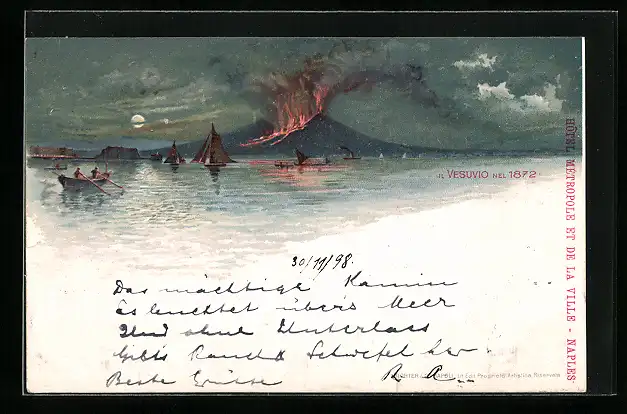 IL VESUVIO NEL 1872
HÔTEL MÉTROPOLE ET DE LA VILLE - NAPLES
30/11/98.
Das mächtige Kamin
Es leuchtet übers Meer
Und ohne Unterlass
Gibts Rauch & Schwefel her
Beste Grüsse R. A.
RICHTER & C. NAPOLI, Proprietà Artistica Riservata